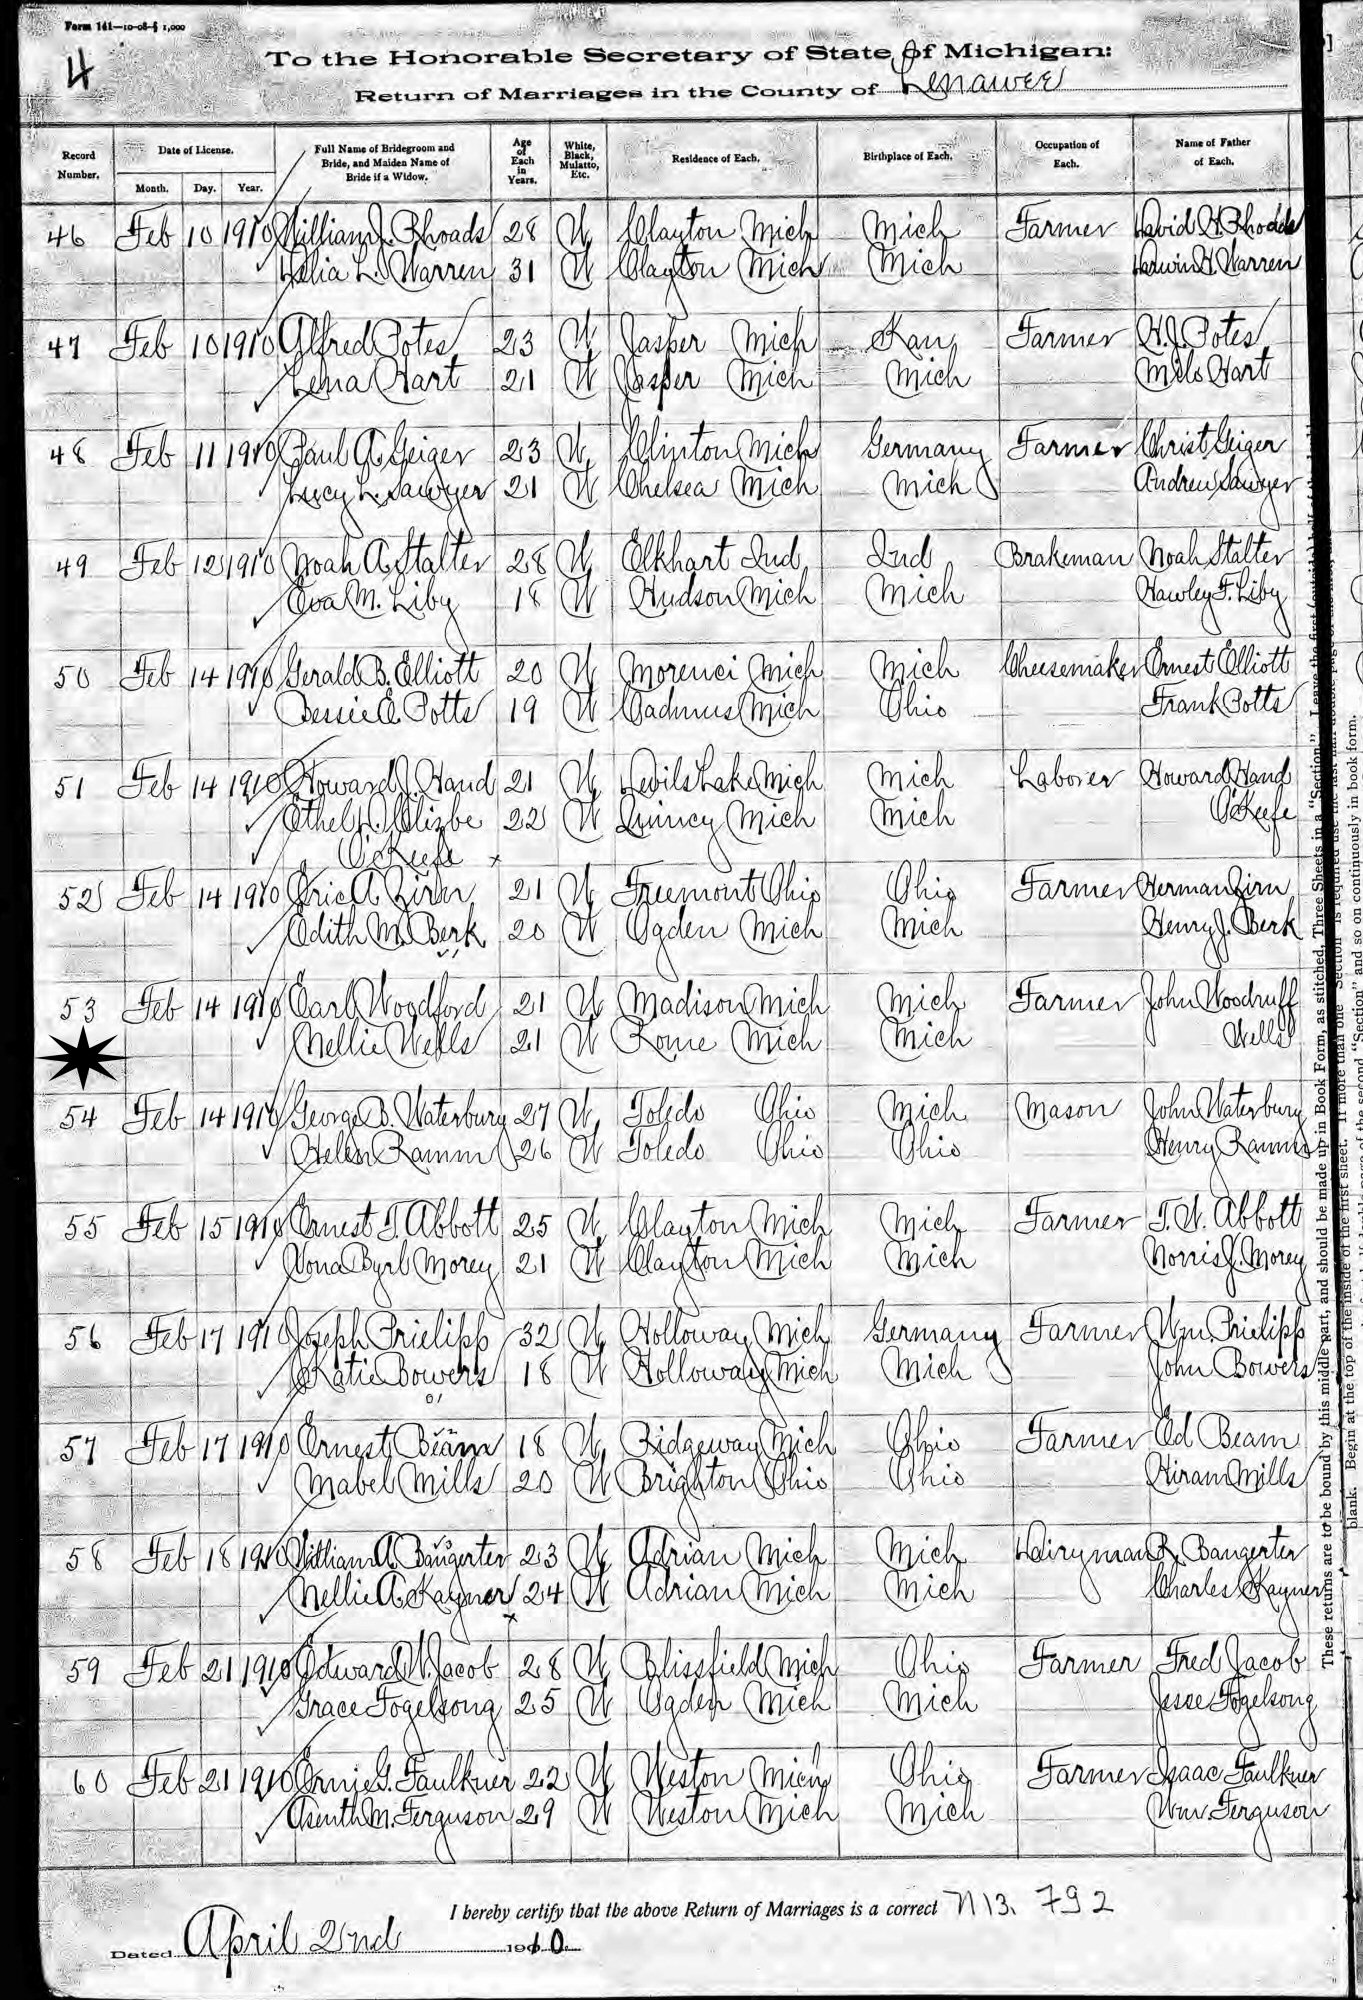 Form 141—10-08-§ 1,000
4
To the Honorable Secretary of State of Michigan:
Return of Marriages in the County of Lenawee
Record Number. Date of License. Month. Day. Year. Full Name of Bridegroom and Bride, and Maiden Name of Bride if a Widow. Age of Each in Years. White, Black, Mulatto, Etc. Residence of Each. Birthplace of Each. Occupation of Each. Name of Father of Each.
46 Feb 10 1910 William J. Rhoads 28 W Clayton Mich Mich Farmer David H. Rhodds
Lelia L. Warren 31 W Clayton Mich Mich Harwin H. Warren
47 Feb 10 1910 Alfred Potes 23 W Jasper Mich Kan Farmer H. J. Potes
Lena Hart 21 W Jasper Mich Mich Milo Hart
48 Feb 11 1910 Paul A. Geiger 23 W Clinton Mich Germany Farmer Christ Geiger
Lucy L. Sawyer 21 W Chelsea Mich Mich Andrew Sawyer
49 Feb 12 1910 Noah A. Stalter 28 W Elkhart Ind Ind Brakeman Noah Stalter
Eva M. Liby 18 W Hudson Mich Mich Hawley F. Liby
50 Feb 14 1910 Gerald B. Elliott 20 W Morenci Mich Mich Cheesemaker Ernest Elliott
Bessie E. Potts 19 W Cadmus Mich Ohio Frank Potts
51 Feb 14 1910 Howard J. Hand 21 W Devils Lake Mich Mich Laborer Howard Hand
Ethel D. Clizbe 22 W Quincy Mich Mich O'Keefe
O'Keefe x
52 Feb 14 1910 Eric A. Zirn 21 W Freemont Ohio Ohio Farmer Herman Zirn
Edith M. Berk 20 W Ogden Mich Mich Henry J. Berk
53 Feb 14 1910 Earl Woodford 21 W Madison Mich Mich Farmer John Woodruff
Nellie Wells 21 W Rome Mich Mich Wells
54 Feb 14 1910 George B. Waterbury 27 W Toledo Ohio Mich Mason John Waterbury
Helen Ramm 26 W Toledo Ohio Ohio Henry Ramm
55 Feb 15 1910 Ernest T. Abbott 25 W Clayton Mich Mich Farmer T. W. Abbott
Vona Byrl Morey 21 W Clayton Mich Mich Norris J. Morey
56 Feb 17 1910 Joseph Prielipp 32 W Holloway Mich Germany Farmer Wm. Prielipp
Katie Bowers 18 W Holloway Mich Mich John Bowers
57 Feb 17 1910 Ernest Beam 18 W Ridgeway Mich Ohio Farmer Ed Beam
Mabel Mills 20 W Brighton Ohio Ohio Hiram Mills
58 Feb 18 1910 William A. Bangerter 23 W Adrian Mich Mich Dairyman R. Bangerter
Nellie A. Kayner 24 W Adrian Mich Mich Charles Kayner
x
59 Feb 21 1910 Edward W. Jacob 28 W Blissfield Mich Ohio Farmer Fred Jacob
Grace Fogelsong 25 W Ogden Mich Mich Jesse Fogelsong
60 Feb 21 1910 Ernie G. Faulkner 22 W Weston Mich Ohio Farmer Isaac Faulkner
Asenth M. Ferguson 29 W Weston Mich Mich Wm. Ferguson
I hereby certify that the above Return of Marriages is a correct N 13. 792
Dated April 22nd 1910.
These returns are to be bound by this middle part, and should be made up in Book Form, as stitched, Three Sheets in a "Section." Leave the first
blank. Begin at the top of the inside of the first sheet. If more than one "Section" is required use the last
of the second "Section" and so on continuously in book form.